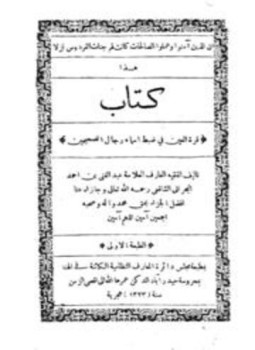 ان الذين آمنوا وعملوا الصالحات كانت لهم جنات الفردوس نزلا
هذا
كتاب
قرة العين في ضبط اسماء رجال الصحيحين
تأليف الفقيه العارف العلامة عبد الغني بن احمد
البحراني الشافعي رحمه الله تعالى وجازاه عنا
افضل الجزاء بحق محمد وآله وصحبه
اجمعين آمين اللهم آمين
الطبعة الاولى
بمطبعة مجلس دائرة المعارف النظامية الكائنة في الهند
بمحروسة حيدرآباد الدكن عمرها الله تعالى الى اقصى الزمن
سنة (١٣٢٣) هجرية